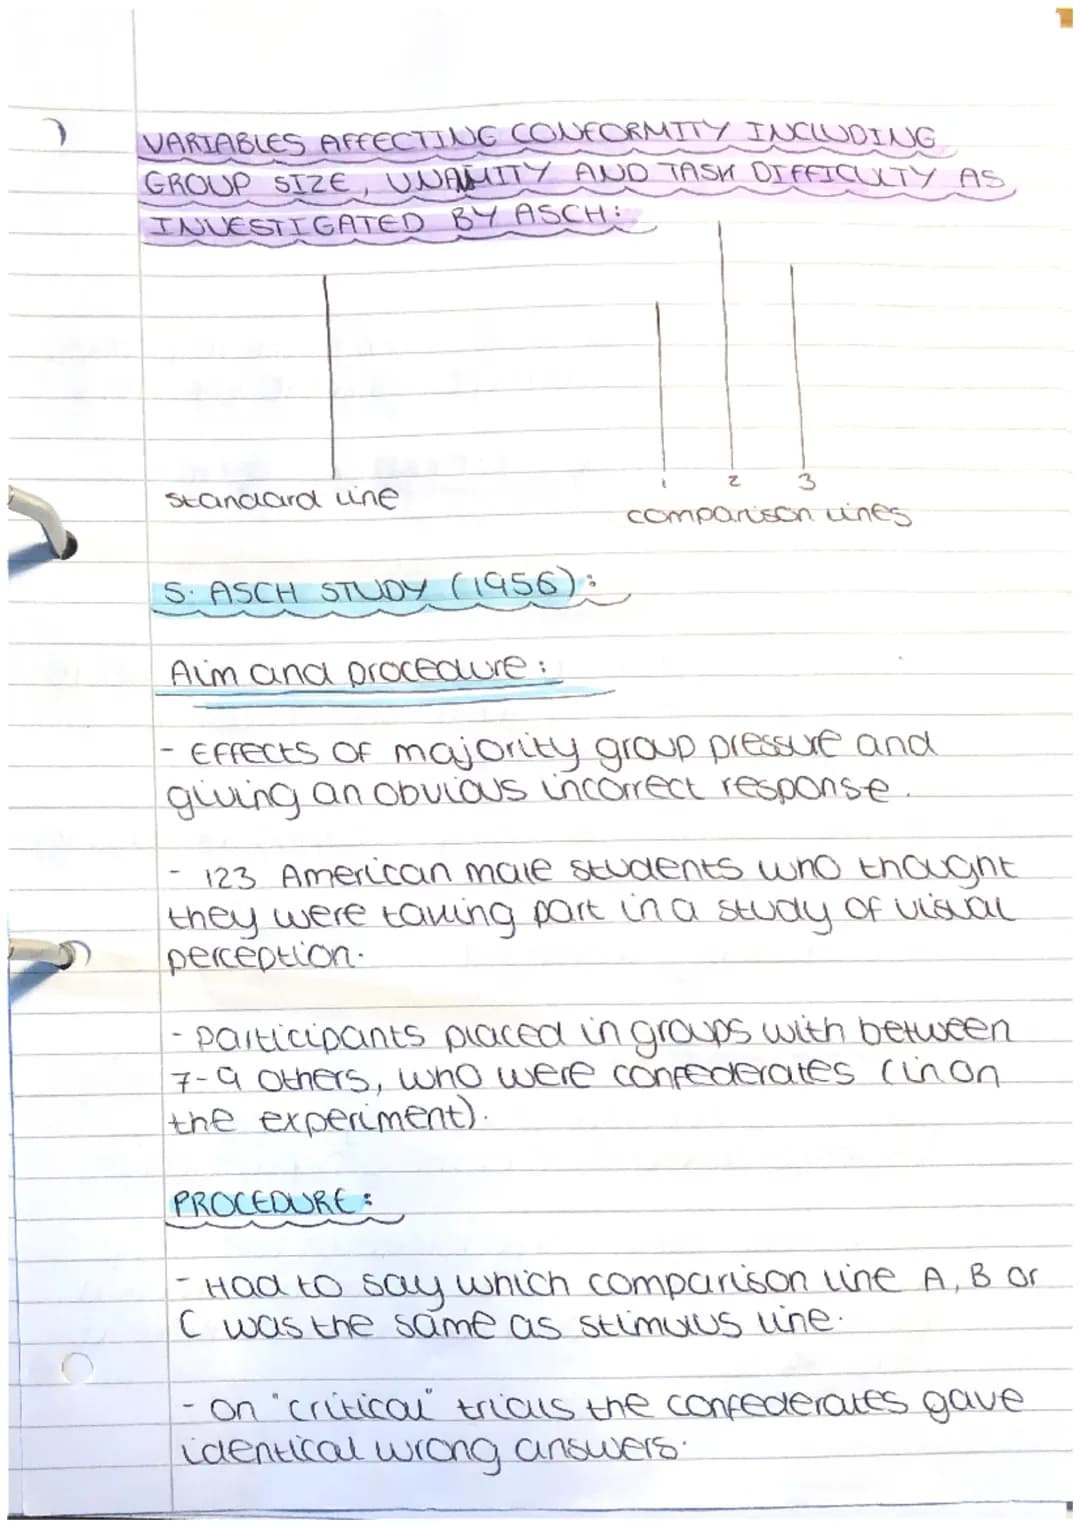 VARIABLES AFFECTING CONFORMITY INCLUDING
GROUP SIZE, UNAMITY AND TASK DIFFICULTY AS
INVESTIGATED BY ASCH:
standard line
1 2 3
comparison lines
S. ASCH STUDY (1956):
Aim and procedure:
- Effects of majority group pressure and
giving an obvious incorrect response.
- 123 American male students who thought
they were taking part in a study of visual
perception.
- participants placed in groups with between
7-9 others, who were confederates (in on
the experiment).
PROCEDURE:
- Had to say which comparison line A, B or
C was the same as stimulus line.
- on "critical" trials the confederates gave
identical wrong answers.